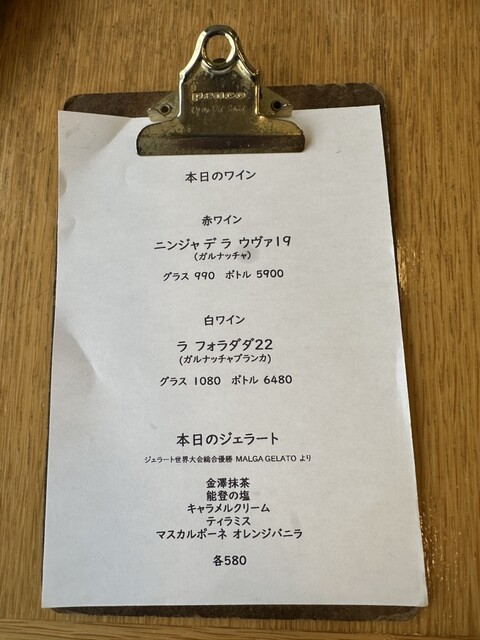 penco
本日のワイン
赤ワイン
ニンジャ デ ラ ウヴァ19
(ガルナッチャ)
グラス 990 ボトル 5900
白ワイン
ラ フォラダダ22
(ガルナッチャブランカ)
グラス 1080 ボトル 6480
本日のジェラート
ジェラート世界大会総合優勝 MALGA GELATO より
金澤抹茶
能登の塩
キャラメルクリーム
ティラミス
マスカルポーネ オレンジバニラ
各580